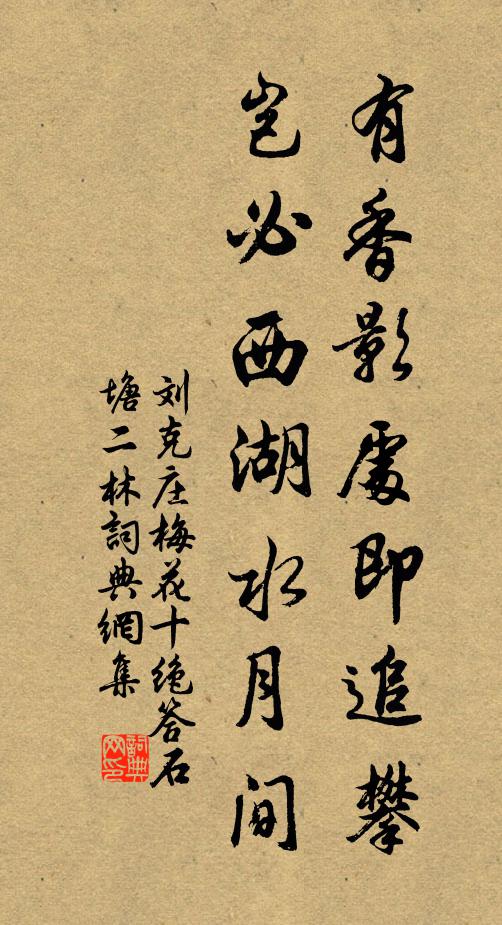 有香影處即追攀
豈必西湖水月间
刘克庄梅花十绝答石
塘二林詞典網集
詞典网印